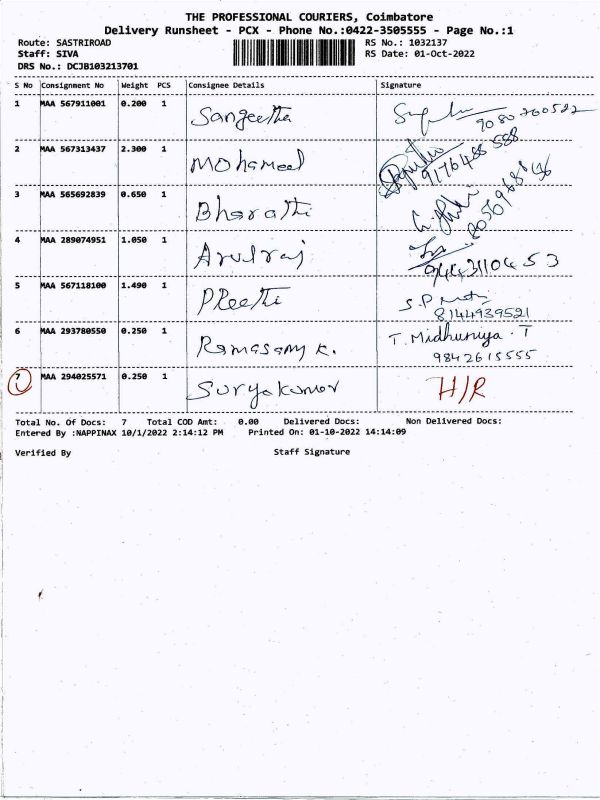 THE PROFESSIONAL COURIERS, Coimbatore
Delivery Runsheet - PCX - Phone No.:0422-3505555 - Page No.:1
Route: SASTRIROAD RS No.: 1032137
Staff: SIVA RS Date: 01-Oct-2022
DRS No.: DCJB103213701
S No Consignment No Weight PCS Consignee Details Signature
1 MAA 567911001 0.200 1 Sangeetha 9080260522
2 MAA 567313437 2.300 1 Mohameed 9176488588
3 MAA 565692839 0.650 1 Bharathi
4 MAA 289074951 1.050 1 Arulraj 9443110453
5 MAA 567118100 1.490 1 PReethi S.P 8144939521
6 MAA 293780550 0.250 1 Ramasamy K. T. Midhuniya . T
9842615555
7 MAA 294025571 0.250 1 Suryakumar H/R
Total No. Of Docs: 7 Total COD Amt: 0.00 Delivered Docs: Non Delivered Docs:
Entered By :NAPPINAX 10/1/2022 2:14:12 PM Printed On: 01-10-2022 14:14:09
Verified By Staff Signature